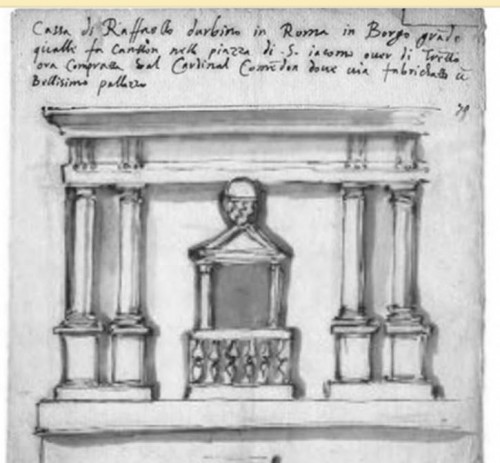 Cassa di Raffaello durbino in Roma in Borgo grāde
qualle fa Cantton nella piazza di .S. iacomo over di Tretto
ora Comprata dal Cardinal Comēdon dove via fabrichatto ū
Bellisimo pallazzo